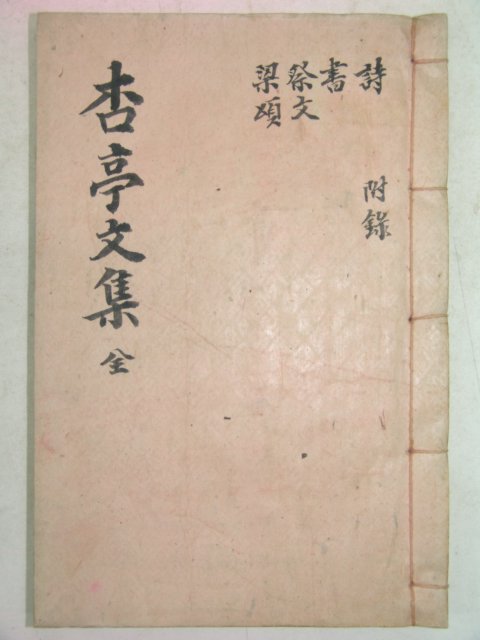 詩
附錄
書
祭文
梁頌
杏亭文集 全